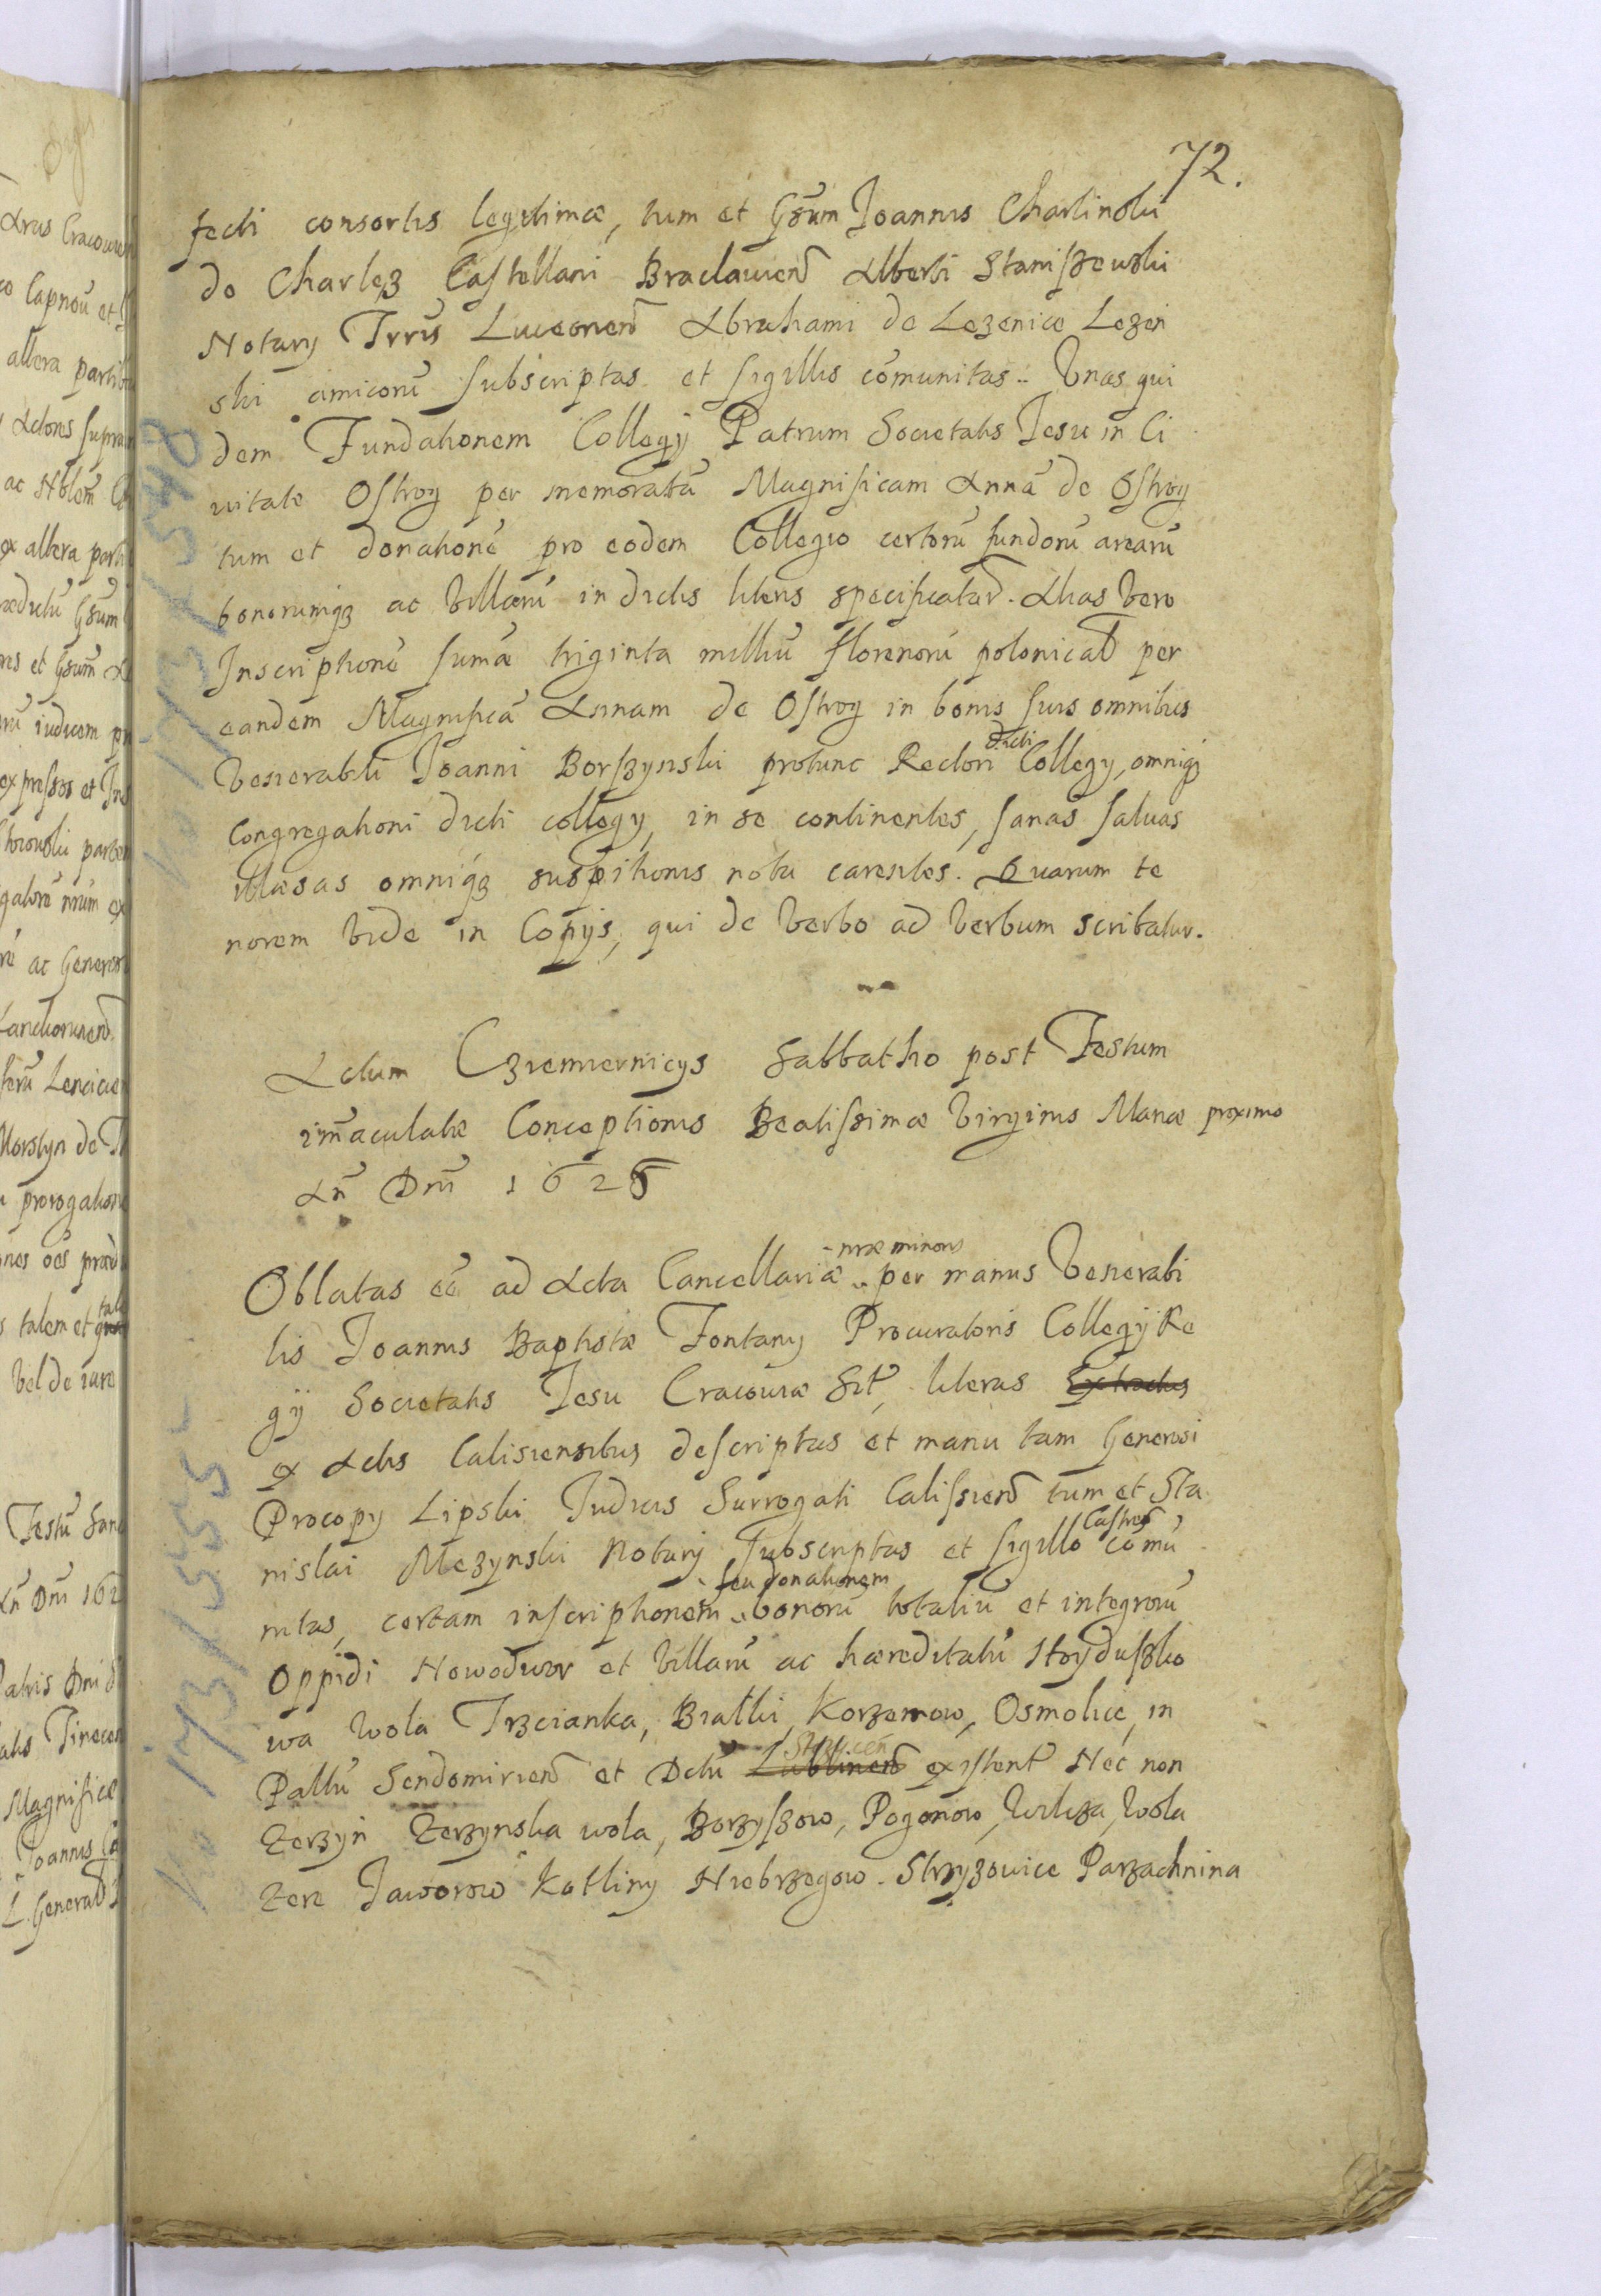 72.
fecti consortis legitimæ, tum et Gsrum Joannis Charlinski
de Charlęz Castellani Braclavien Alberti Staniszewski
Notary Trris Luceorien Abrahami de Lezenice Lezen
ski amicorū subscriptas et sigillis cōmunitas. Vnas qui
dem Fundationem Collegÿ Patrum Societatis Jesu in Ci
uitate Ostrog per memoratā Magnificam Annā de Ostrog
tum et donationē pro eodem Collegio certorū fundorū arearū
bonorumqз ac Villarū in dictis literis specificatar. Alias Vero
Inscriptionē sumæ triginta milliū florenorū polonical per
eandem Magnificā Annam de Ostrog in bonis suis omnibus
Venerabili Joanni Borszynski protunc Rectori dicti Collegy, omniqз
Congregationi dicti collegy, in se continentes, sanas saluas
illæsas omniqз suspitionis nota carentes. Quarum te
norem vide in Copijs, qui de Verbo ad Verbum scribatur.
Actum Czremiernicys Sabbatho post Festum
im̄aculatæ Conceptionis Beatissimæ Virginis Mariæ proximo
An̄ Dnī 1626
Oblatas eē ad Acta Cancellariæ nræ minoris per manus Venerabi
lis Joannis Baptistæ Fontany Procuratoris Collegÿ Re
gÿ Societatis Jesu Cracoviæ Sit, literas Extractus
ex Actis Calisiensibus descriptas et manu tam Generosi
Procopy Lipski Judicis Surrogati Calissien tum et Sta
nislai Mezynski Notarÿ subscriptas et sigillo Castren cōmu
nitas, certam inscriptionem seu donationem bonorū totaliū et integrorū
Oppidi Nowodwor et Villarū ac hæreditatū Hoyduszko
wa Wola Trzcianka, Bratki, Korzeniow, Osmolice, in
Pallū Sendomirien et Dctū Lublinen Stezicen existent Nec non
Zerzyn Zerzynska wola, Borzyszow, Pogonow, Wilcza Wola
Zere Jaworow Kotliny Niebrzegow. Stryzowice Parzachnina